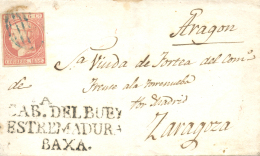 Aragon
S.ª Viuda de Fortea del Com.º
de
Madrid
Zaragoza
CAB. DEL BUEY
ESTREMADURA
BAXA.